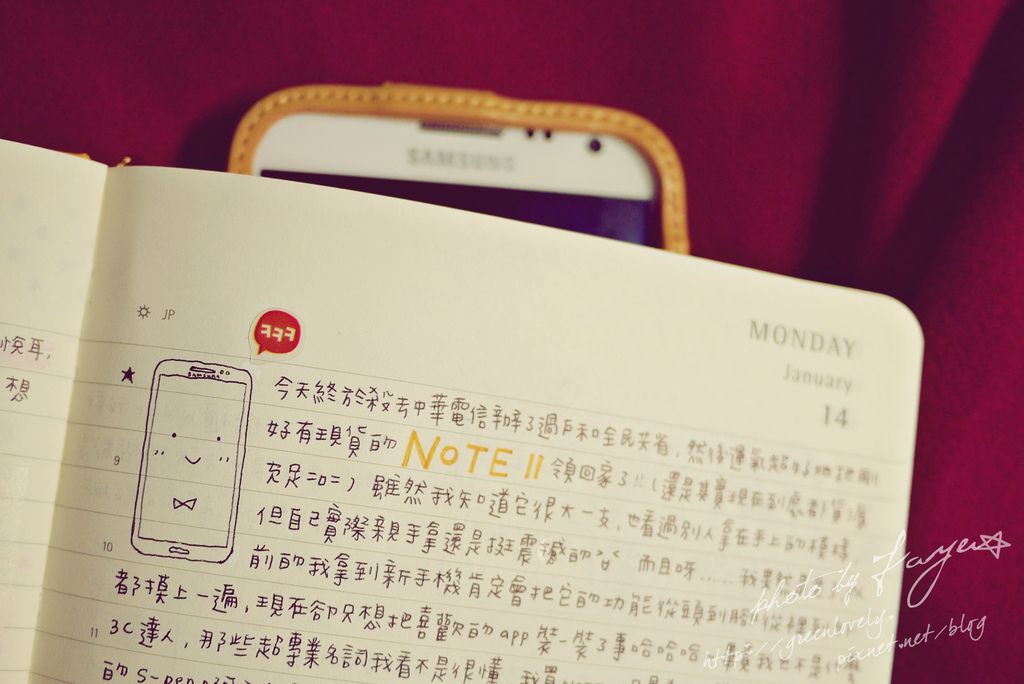 SAMSUNG
MONDAY
January
14
JP
ㅋㅋㅋ
SAMSUNG
快耳,
想
今天終於殺去中華電信辦了過戶和全民共省,然後運氣超好地他剛
好有現貨的 NOTE II 領回家了!!(還是其實現在到處都貨源
9
充足=o=) 雖然我知道它很大一支,也看過別人拿在手上的模樣,
但自己實際親手拿還是挺震撼的 而且呀......我
10
前的我拿到新手機肯定會把它的功能從頭到腳從裡到
都摸上一遍,現在卻只想把喜歡的app裝一裝了事哈哈哈 我也不是什麼
11
3C達人,那些超專業名詞我看不是很懂,我買
的S-pen
photo by Faye
http://greenlovely.
pixnet.net/blog